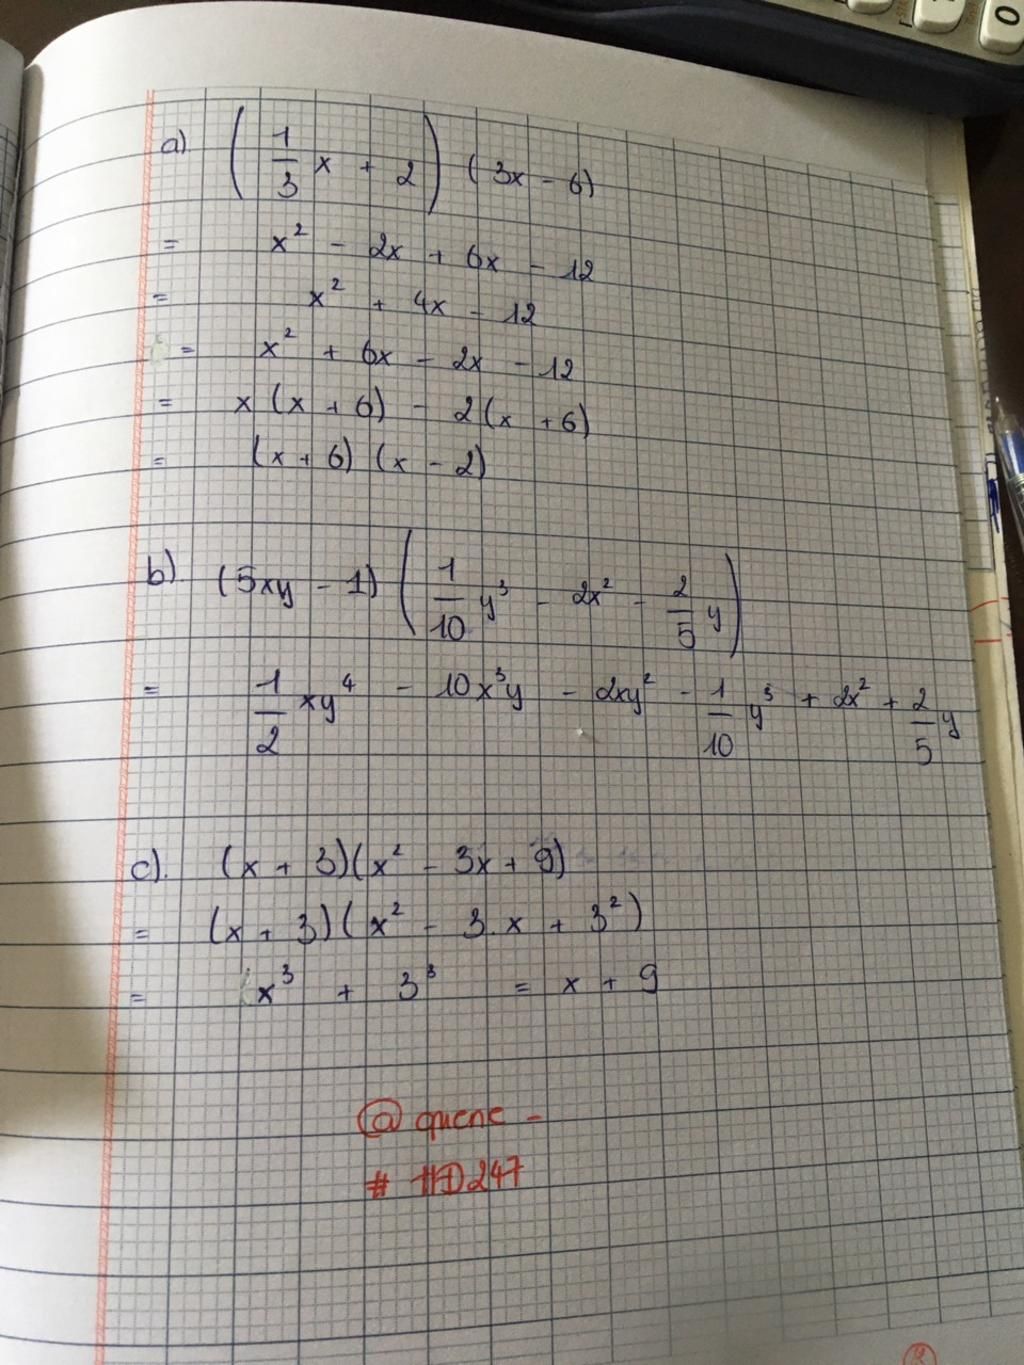 a) (1/3 x + 2) (3x - 6)
= x² - 2x + 6x - 12
= x² + 4x - 12
= x² + 6x - 2x - 12
= x (x + 6) - 2(x + 6)
= (x + 6) (x - 2)
b). (5xy - 1) (1/10 y³ - 2x² - 2/5 y)
= 1/2 xy⁴ - 10x³y - 2xy² - 1/10 y³ + 2x² + 2/5 y
c). (x + 3)(x² - 3x + 9)
= (x + 3)(x² - 3.x + 3²)
= x³ + 3³ = x + 9
@ quene -
# HD247